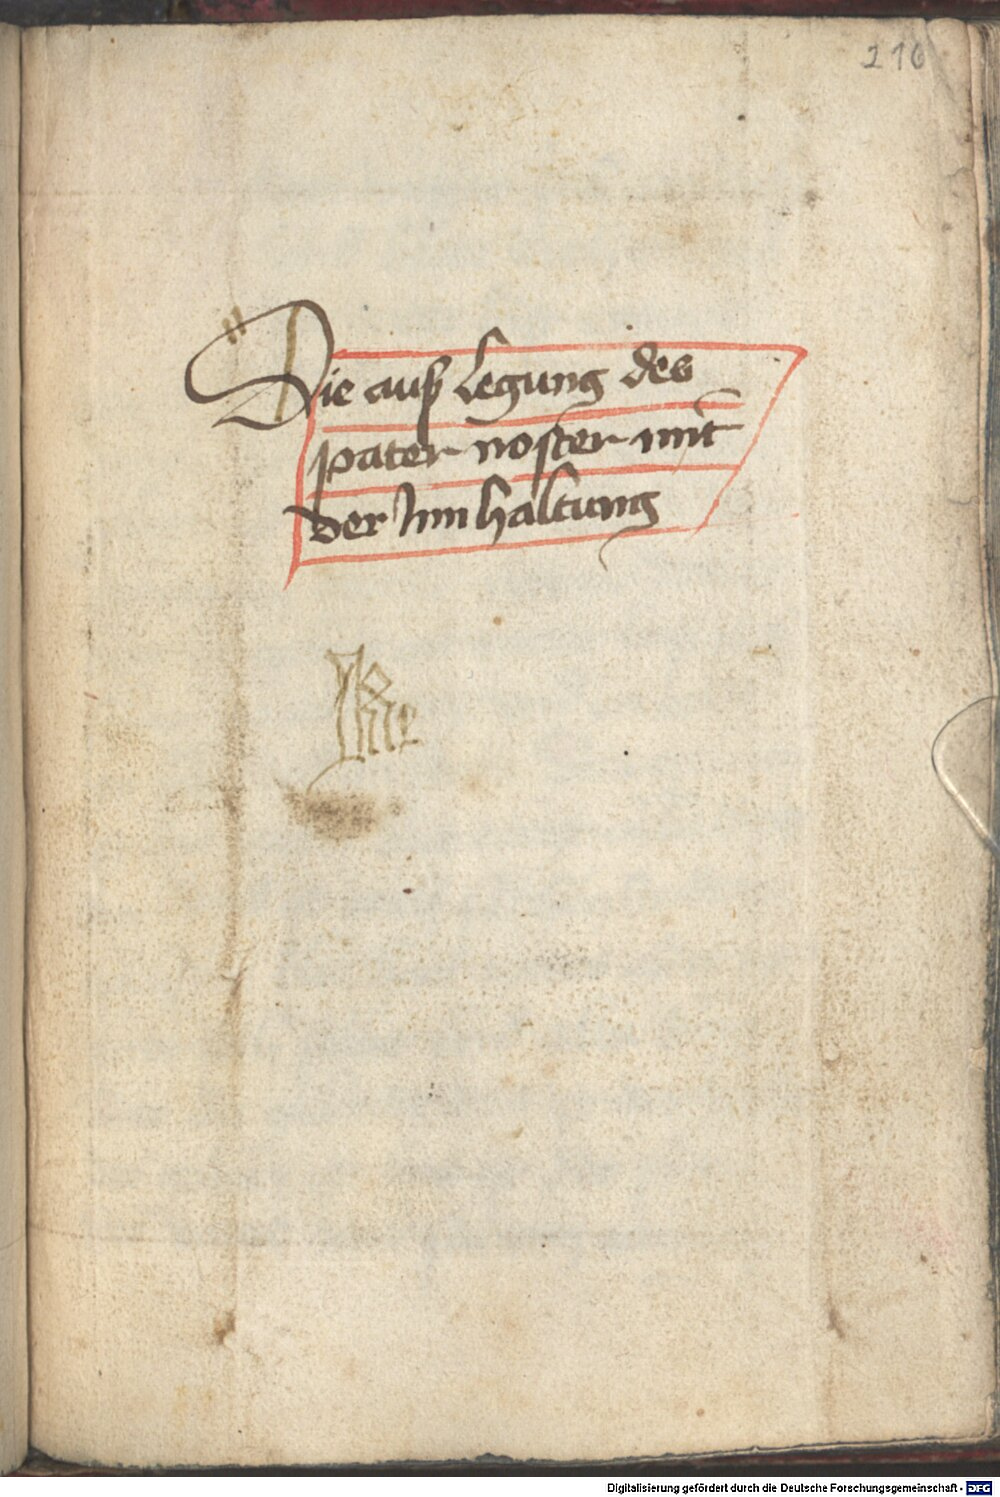 216
Die auſz legung des
pater noster mit
der Inn haltung
Digitalisierung gefördert durch die Deutsche Forschungsgemeinschaft - DFG